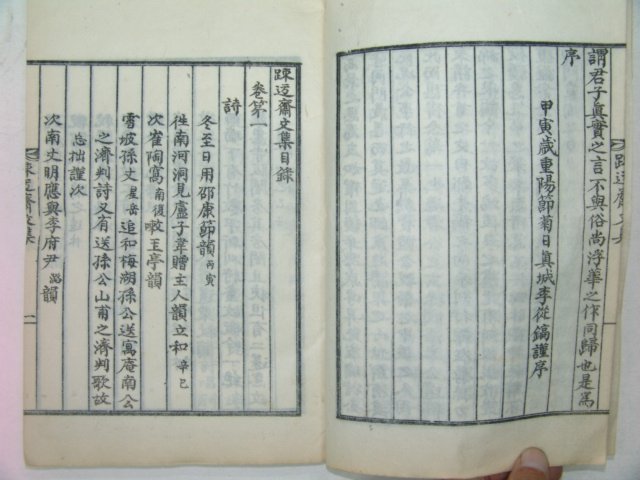 謂君子眞實之言不與俗尚浮華之作同歸也是爲
序
甲寅歲重陽節菊日眞城李從鎬謹序
踈迃齋文集目錄
卷第一
詩
冬至日用邵康節韻 丙寅
徃南河洞見盧子韋贈主人韻立和 辛巳
次崔陶窩 南復 皦玉亭韻
雪坡孫丈 星岳 追和梅湖孫公送寓庵南公
之濟判詩又有送孫公山甫之濟判歌故
忘拙謹次
次南丈明應與李府尹 潞 韻